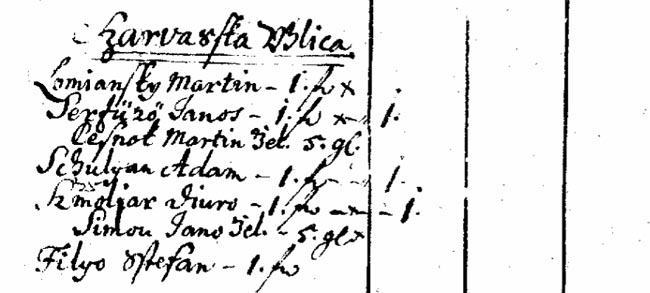 Szarvasska Vlica
Lomiansky Martin - 1. fr x
Serfüző Janos - 1. fr x - 1.
Cesnok Martin Zel. 5. gl.
Schulyan Adam - 1. fr - - 1.
Szmoljar Diuro - 1. fr - x - 1.
Simon Jano Zel. - 5. gl x
Filyo Stefan - 1. fr